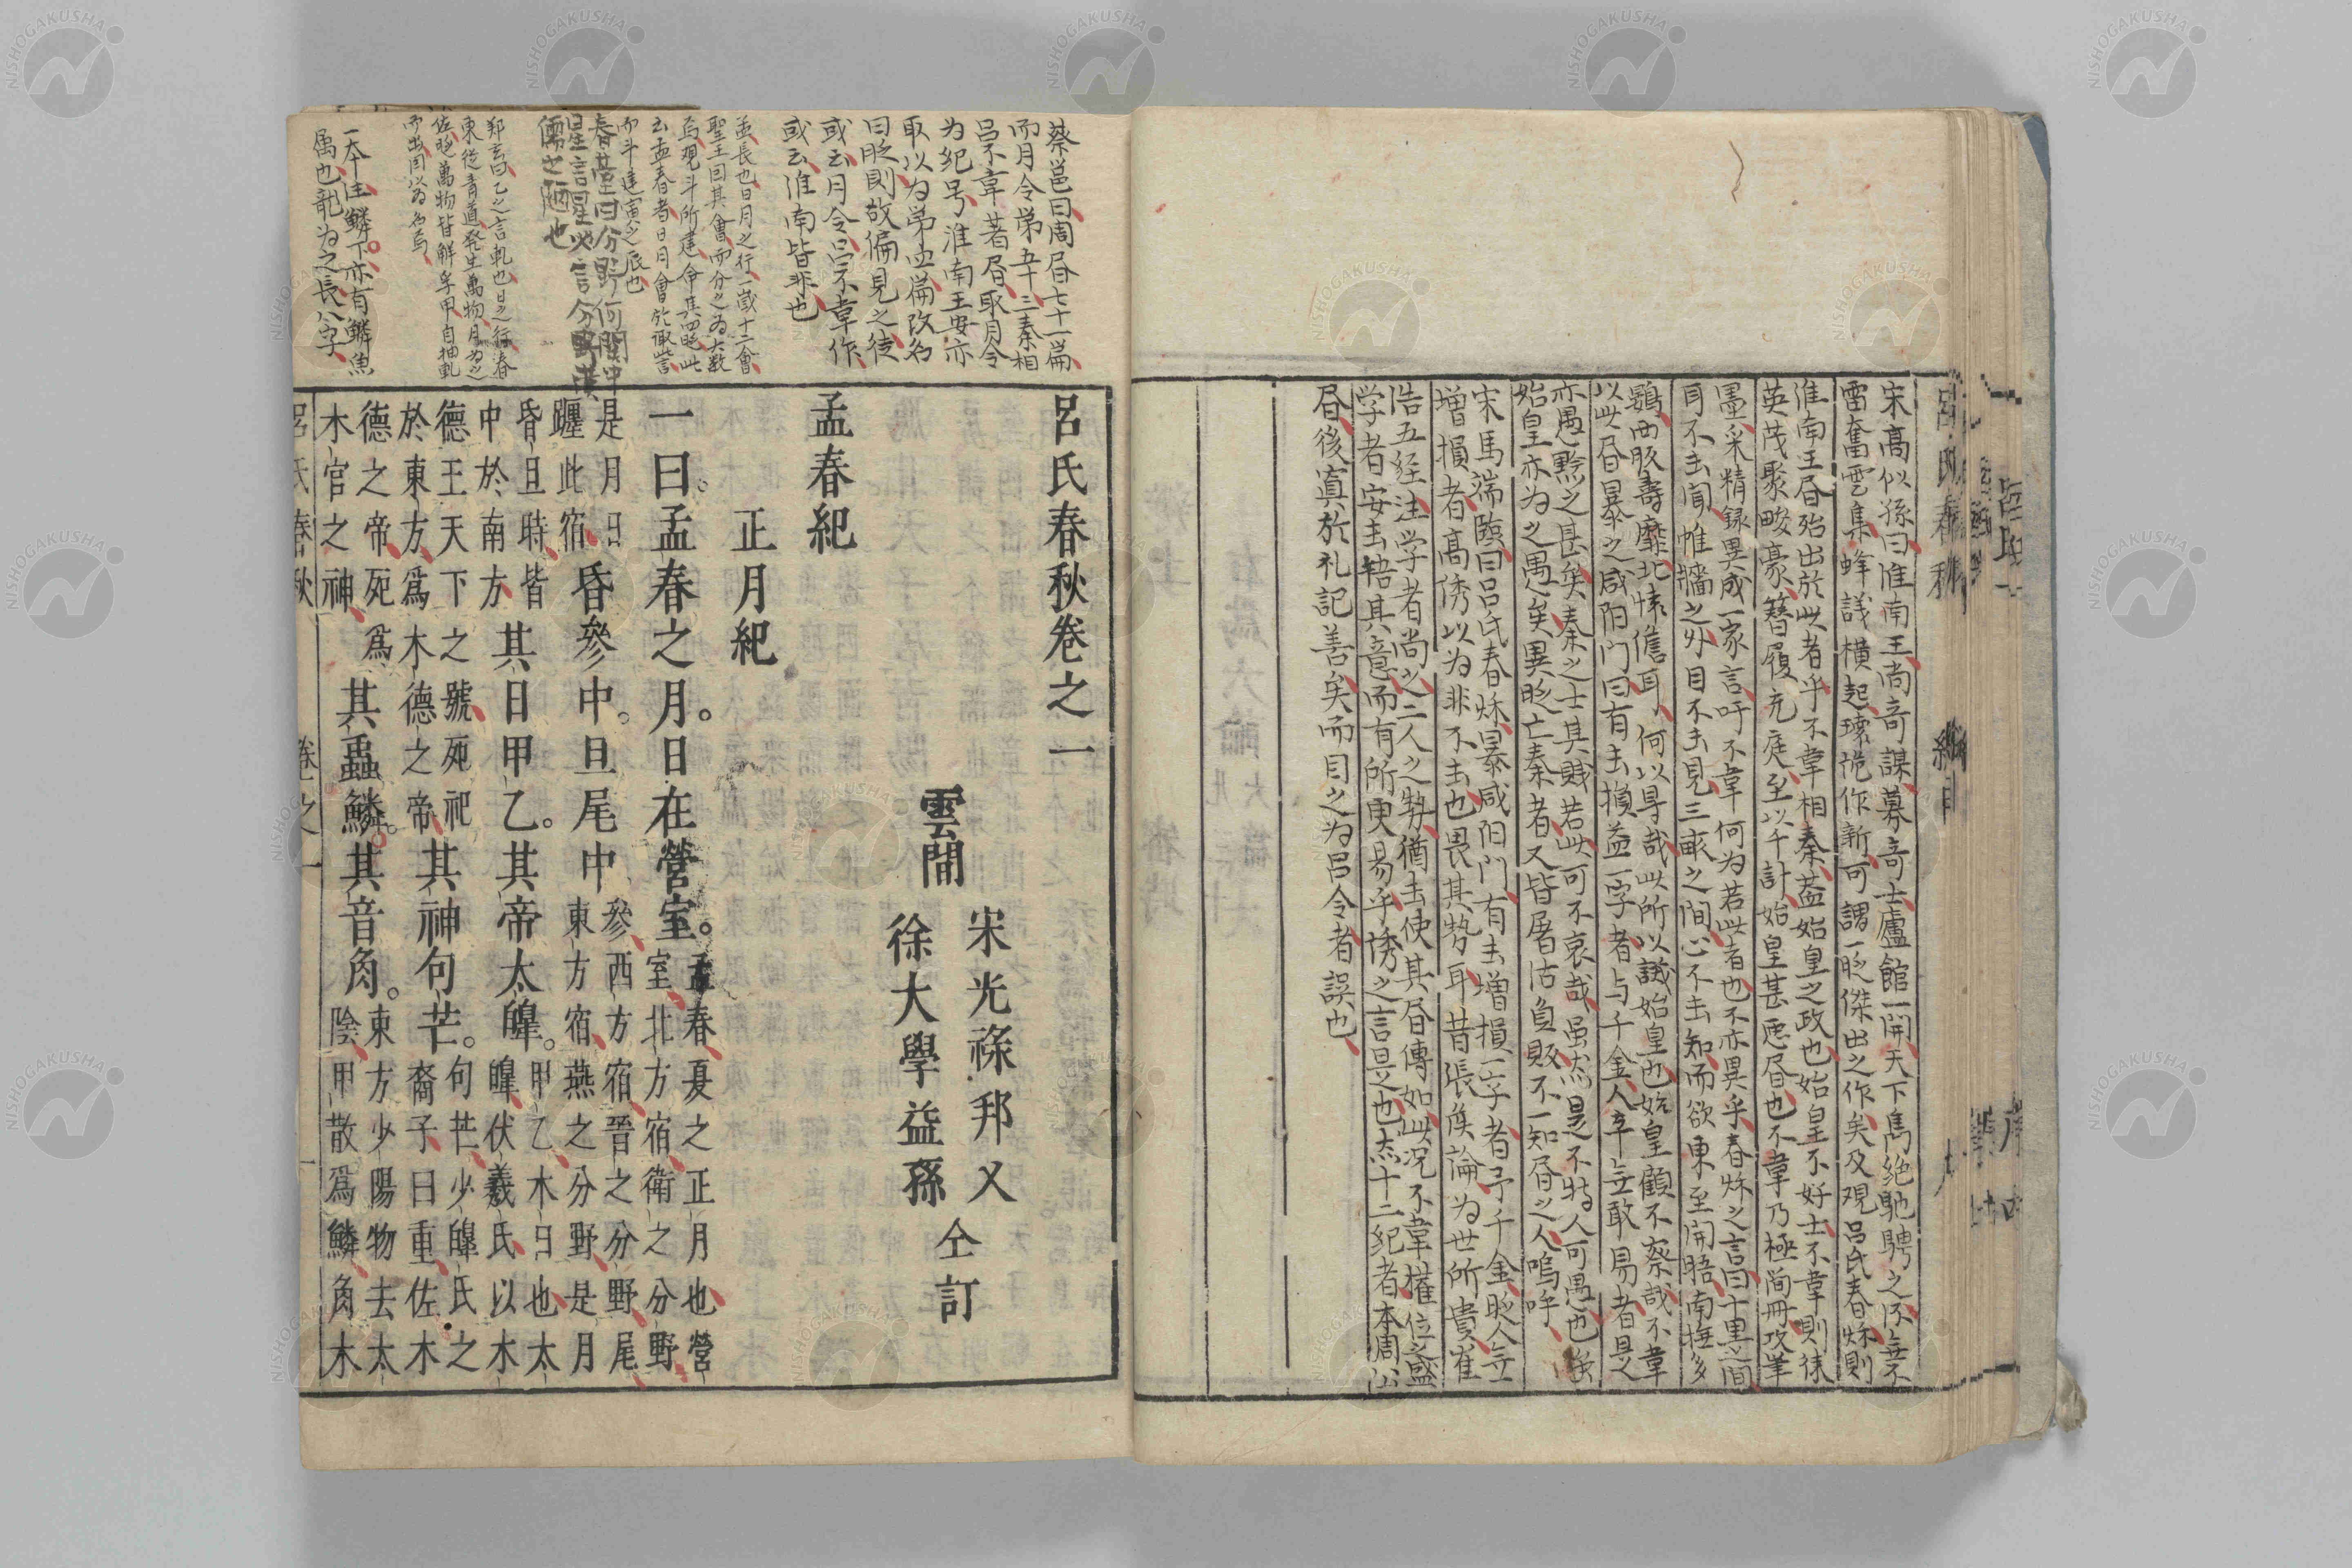 宋高似孫曰淮南王尚奇謀募奇士廬館一開天下雋絶馳騁之流無不
雷奮雲集蜂議橫起瓌詭作新可謂一時傑出之作矣及觀呂氏春秋則
淮南王書殆出於此者乎不韋相秦蓋始皇之政也始皇不好士不韋則徠
英茂聚畯豪簪履充庭至以千計始皇甚惡書也不韋乃極簡冊攻筆
墨采精錄異成一家言吁不韋何为若此者也不亦異乎春秋之言曰十里之間
耳不能聞帷牆之外目不能見三畝之間心不能知而欲東至開晤南撫多
鷃西服壽靡北懷儋耳何以得哉此所以譏始皇也始皇顧不察哉不韋
以此書暴之咸陽門曰有能損益一字者与千金人卒無敢易者是
亦愚黔之甚矣秦之士其賤若此可不哀哉雖然是不特人可愚也雖
始皇亦为之愚矣異時亡秦者又皆屠沽負販不一知書之人嗚呼
宋馬端臨曰呂氏春秋暴咸陽門有能增損一字者予千金時人無
增損者高誘以为非不能也畏其勢耳昔張侯論为世所貴崔
浩五経注学者尚之二人之勢猶能使其書傳如此況不韋權位之盛
学者安能牾其意而有所更易乎誘之言是也然十二紀者本周公
書後寘於礼記善矣而目之为呂令者誤也
蔡邕曰周書七十一篇
而月令第五十三秦相
呂不韋著書取月令
为紀号淮南王安亦
取以为第四篇改名
曰時則故偏見之徒
或云月令呂不韋作
或云淮南皆非也
孟長也日月之行一歳十二會
聖王因其會而分之为大数
焉觀斗所建命其四時此
云孟春者日月會於諏訾
而斗建寅之辰也
春臺曰分野何關中
星言星必言分野漢
儒之陋也
鄭玄曰乙之言軋也日之行春
東從青道発生萬物月为之
佐時萬物皆解孚甲自抽軋
而出因以为名焉
一本注鱗下亦有鱗魚
属也龍为之長八字
呂氏春秋卷之一
雲間
宋光祿邦乂
徐大學益孫
仝訂
孟春紀
正月紀
一曰孟春之月日在營室孟春夏之正月也營
室北方宿衛之分野
是月日昏參中旦尾中參西方宿晉之分野尾
躔此宿東方宿燕之分野是月
昏旦時皆其日甲乙其帝太皥甲乙木日也太
中於南方皥伏羲氏以木
德王天下之號死祀其神句芒句芒少皥氏之
於東方爲木德之帝裔子曰重佐木
德之帝死爲其蟲鱗其音角東方少陽物去太
木官之神陰甲散爲鱗角木
呂氏春秋 卷之一 一